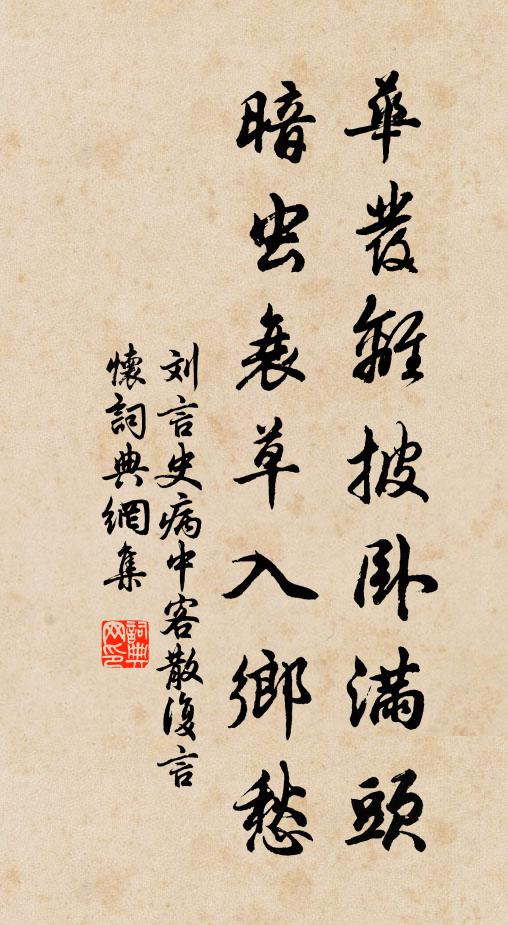 華發離披卧滿頭
暗虫衰草入鄉愁
刘言史病中客散復言
懷詞典網集
詞典
网印